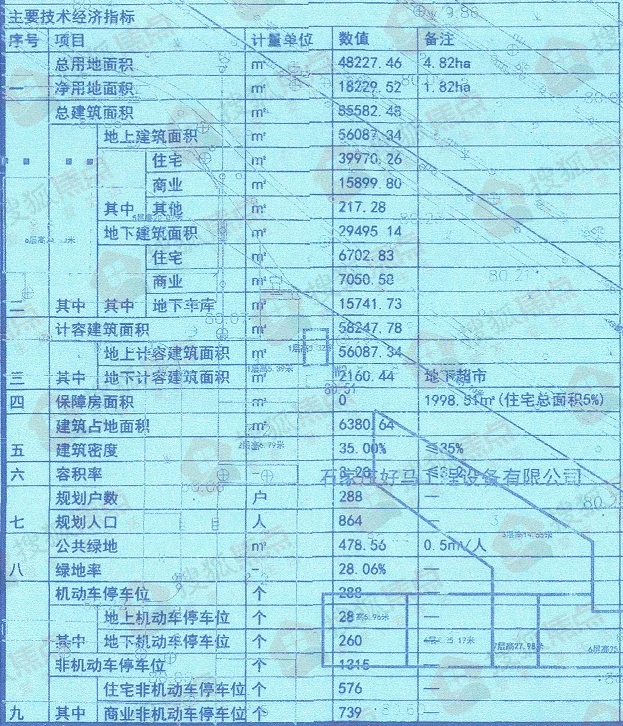 主要技术经济指标
序号 项目 计量单位 数值 备注
总用地面积 ㎡ 48227.46 4.82ha
一 净用地面积 ㎡ 18229.52 1.82ha
总建筑面积 ㎡ 85582.48
地上建筑面积 ㎡ 56087.34
住宅 ㎡ 39970.26
商业 ㎡ 15899.80
其中 其他 ㎡ 217.28
地下建筑面积 ㎡ 29495.14
住宅 ㎡ 6702.83
商业 ㎡ 7050.58
二 其中 其中 地下车库 ㎡ 15741.73
计容建筑面积 ㎡ 58247.78
地上计容建筑面积 ㎡ 56087.34
三 其中 地下计容建筑面积 ㎡ 2160.44 地下超市
四 保障房面积 ㎡ 0 1998.51㎡(住宅总面积5%)
建筑占地面积 ㎡ 6380.64
五 建筑密度 - 35.00% ≦35%
六 容积率 -
规划户数 户 288 —
七 规划人口 人 864 —
公共绿地 ㎡ 478.56 0.5㎡/人
八 绿地率 - 28.06% —
机动车停车位 个 288 —
地上机动车停车位 个 28
其中 地下机动车停车位 个 260
非机动车停车位 个 1315 —
住宅非机动车停车位 个 576 —
九 其中 商业非机动车停车位 个 739 —
搜狐焦点